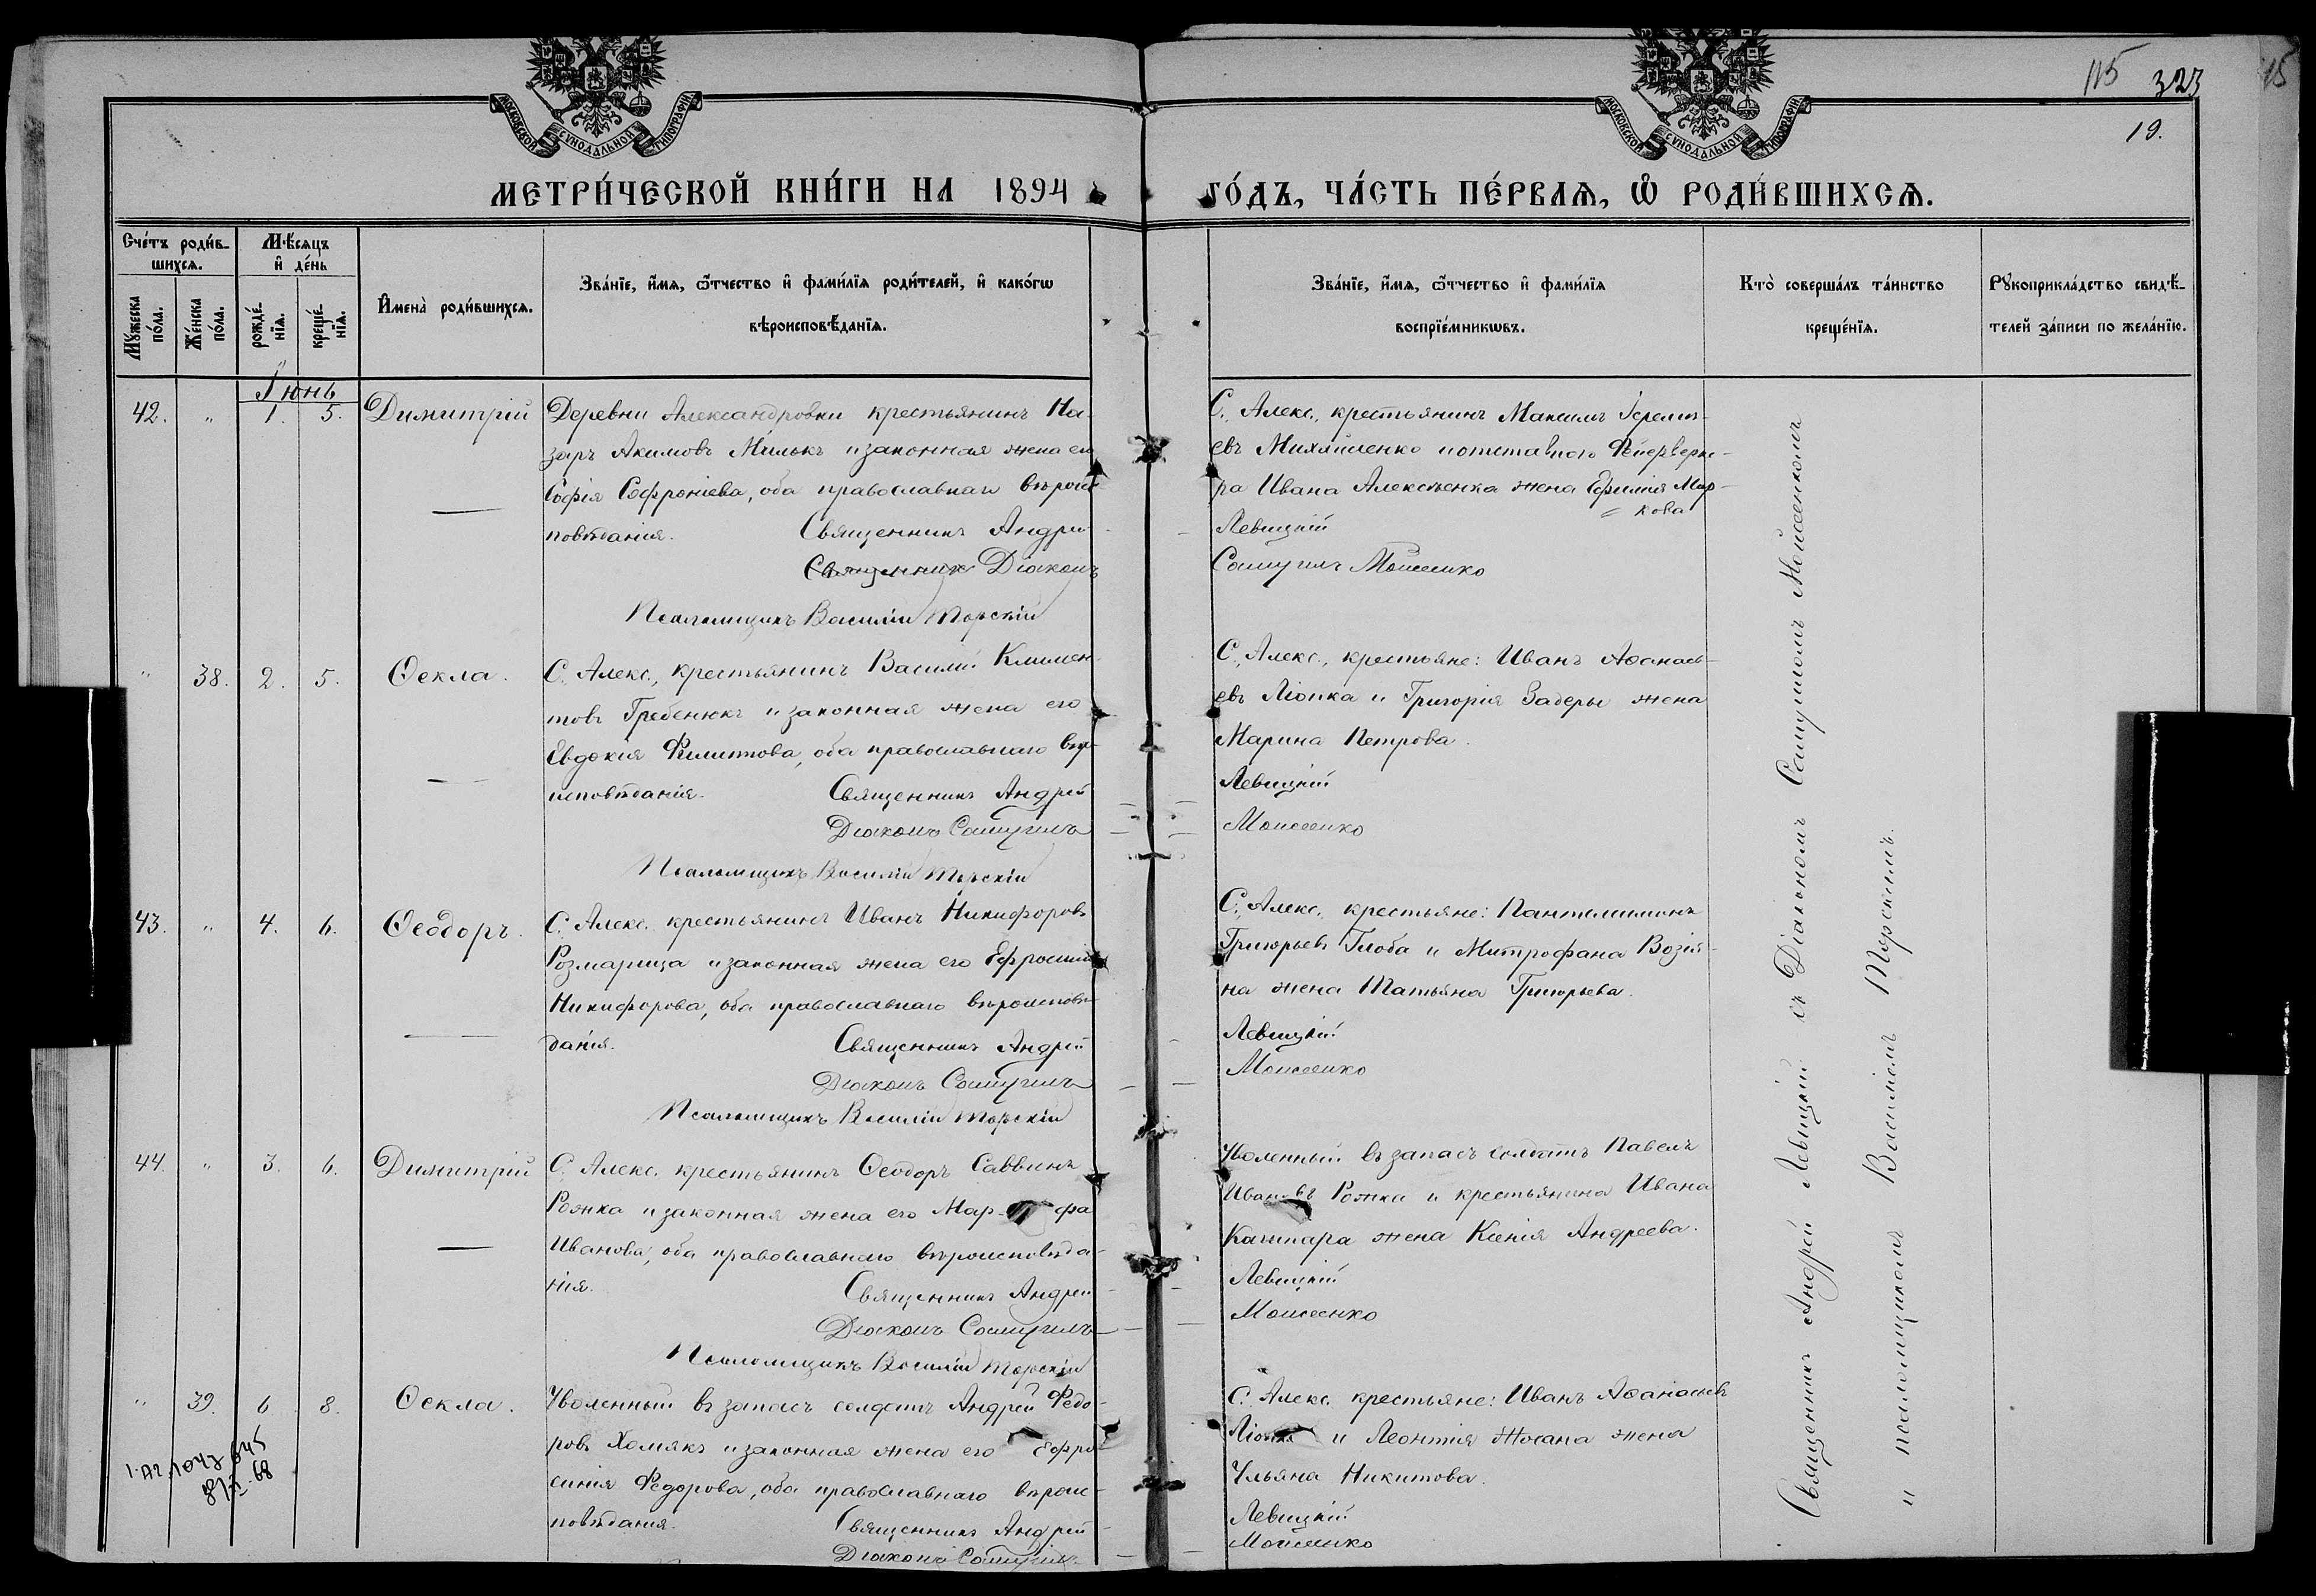 115 323
15
19.
МОСКОВСКОЙ СѴНОДАЛЬНОЙ ТИПОГРАФІИ
МОСКОВСКОЙ СѴНОДАЛЬНОЙ ТИПОГРАФІИ
МЕТРИ́ЧЕСКОЙ КНИ́ГИ НА 1894 ГО́ДЪ, ЧА́СТЬ ПЕ́РВАѦ, Ѡ РОДИ́ВШИХСѦ.
Сче́тъ роди́в-
шихсѧ.
Мꙋ́жеска по́ла.
Же́нска по́ла.
Мѣ́сѧцъ
и҆ де́нь
рожде́-
нїѧ.
креще́-
нїѧ.
И҆мена̀ роди́вшихсѧ.
Зва́нїе, и҆́мѧ, ѻ҆́тчество и҆ фами́лїѧ роди́телей, и҆ како́гѡ
вѣроисповѣ́данїѧ.
Зва́нїе, и҆́мѧ, ѻ҆́тчество и҆ фами́лїѧ
воспрїе́мникѡвъ.
Кто̀ соверша́лъ та́инство
креще́нїѧ.
Рꙋкоприкла́дство свидѣ́-
телей за́писи по жела́нїю.
Іюнь
42. " 1. 5. Димитрій
Деревни Александровки крестьянинъ На-
заръ Акимовъ Милькъ и законная жена его
Софія Софроніева, оба православнаго вѣроис-
повѣданія. Священникъ Андрей
Священникъ Діаконъ
Псаломщикъ Василій Торскій
С. Алекс. крестьянинъ Максимъ Іеремі-
евъ Михайленко и отставного Фейерверке-
ра Ивана Алексѣенка жена Ефимія Мар-
кова
Левицкій
Самуилъ Моисеенко
" 38. 2. 5. Ѳекла.
С. Алекс. крестьянинъ Василій Климен-
товъ Гребенюкъ и законная жена его
Евдокія Филиппова, оба православнаго вѣро-
исповѣданія. Священникъ Андрей
Діаконъ Самуилъ
Псаломщикъ Василій Торскій
С. Алекс., крестьяне: Иванъ Аѳанась-
евъ Ліопка и Григорія Задеры жена
Марина Петрова.
Левицкій
Моисеенко
43. " 4. 6. Ѳеодоръ.
С. Алекс. крестьянинъ Иванъ Никифоровъ
Розмарица и законная жена его Ефросинія
Никифорова, оба православнаго вѣроисповѣ-
данія. Священникъ Андрей
Діаконъ Самуилъ
Псаломщикъ Василій Торскій
С. Алекс. крестьяне: Пантелимонъ
Григорьевъ Глоба и Митрофана Возія-
на жена Татьяна Григорьева.
Левицкій
Моисеенко
44. " 3. 6. Димитрій
С. Алекс. крестьянинъ Ѳеодоръ Саввинъ
Рожка и законная жена его Мар-фа
Иванова, оба православнаго вѣроисповѣда-
нія. Священникъ Андрей
Діаконъ Самуилъ
Псаломщикъ Василій Торскій
Уволенный въ запасъ солдатъ Павелъ
Ивановъ Рожка и крестьянина Ивана
Кашпара жена Ксенія Андреева.
Левицкій
Моисеенко
" 39. 6 8. Ѳекла.
Уволенный въ запасъ солдатъ Андрей Федо-
ровъ Хомякъ и законная жена его Ефро-
синія Федорова, оба православнаго вѣроис-
повѣданія. Священникъ Андрей
Діаконъ Самуилъ
С. Алекс. крестьяне: Иванъ Аѳанасьевъ
Ліопка и Леонтія жена
Ульяна Никитова.
Левицкій
Моисеенко
Священникъ Андрей Левицкій съ Діакономъ Самуиломъ Моисеенкомъ
и псаломщикомъ Василіемъ Торскимъ.